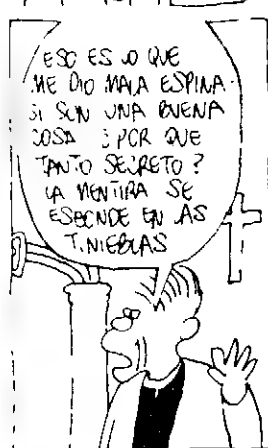 ESO ES LO QUE
ME DIO MALA ESPINA.
SI SON UNA BUENA
COSA ¿POR QUE
TANTO SECRETO?
LA MENTIRA SE
ESCONDE EN LAS
TINIEBLAS